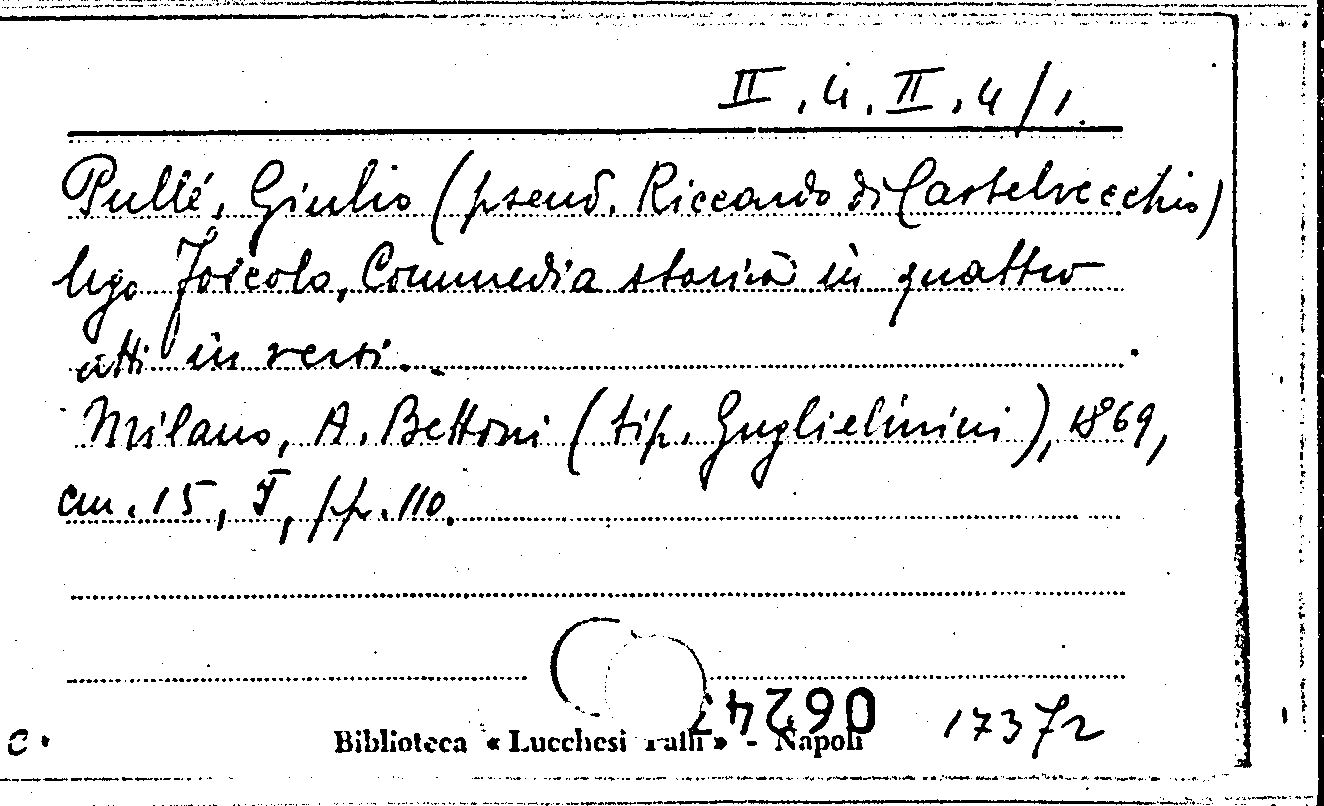 II.4.II.4/1.
Pullé, Giulio (pseud. Riccardo di Castelvecchio)
Ugo Foscolo, Commedia storica in quattro
atti in versi.
Milano, A. Bettoni (tip. Guglielmini), 1869,
cm. 15, I, pp. 110.
17372
C.
Biblioteca « Lucchesi Palli » - Napoli